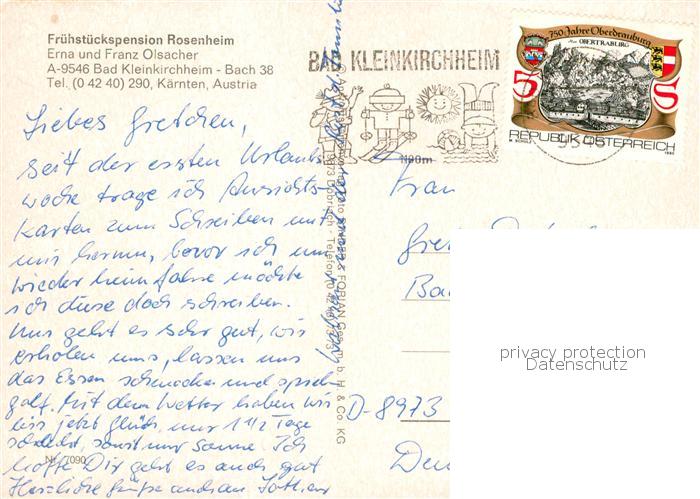 Frühstückspension Rosenheim
Erna und Franz Olsacher
A-9546 Bad Kleinkirchheim - Bach 38
Tel. (0 42 40) 290, Kärnten, Austria
Liebes Gretchen,
seit der ersten Urlaubs
woche trage ich Ansichts-
karten zum Schreiben mit
mir herum, bevor ich nun
wieder heimfahre möchte
ich diese doch schreiben.
Uns geht es sehr gut, wir
erholen uns, lassen uns
das Essen schmecken und spielen
golf. Mit dem Wetter haben wir
bis jetzt Glück, nur 1 1/2 Tage
schlecht, sonst nur Sonne. Ich
hoffe Dir geht es auch gut
Herzliche Grüße
Nr. 7090
BAD KLEINKIRCHHEIM
1100m
750 Jahre Oberdrauburg
OBERTRABURG
5 S
REPUBLIK ÖSTERREICH
1990
Frau
D-8973
privacy protection
Datenschutz